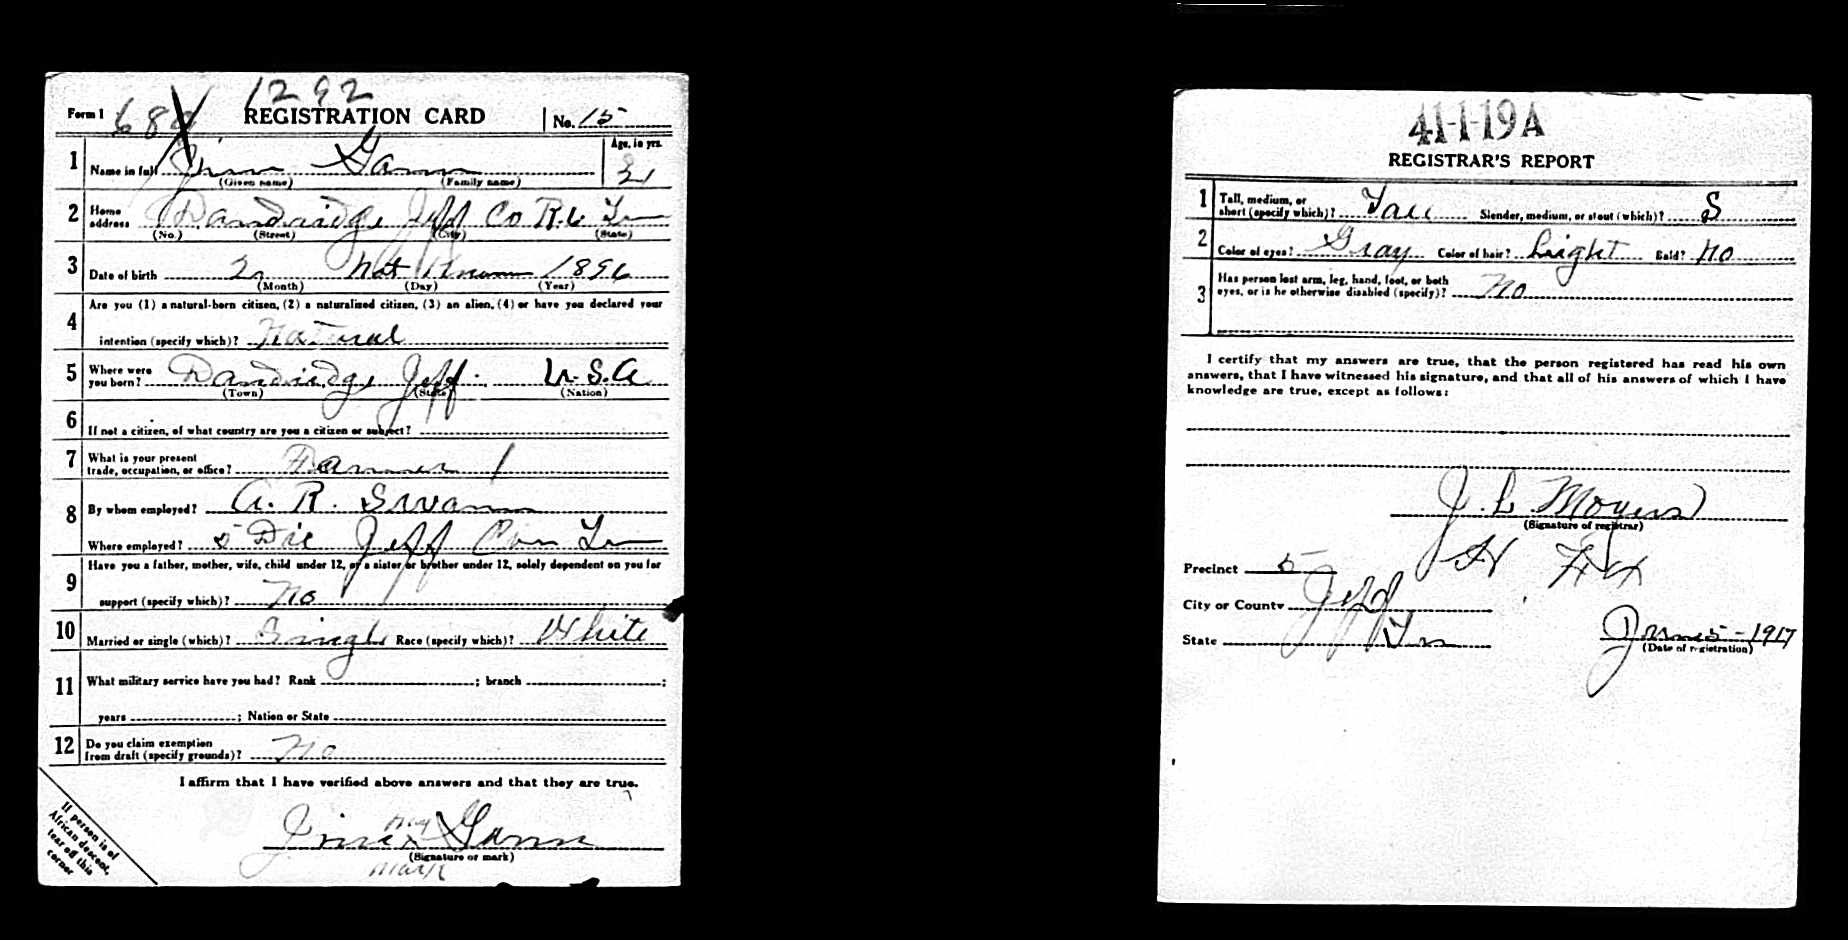 1292
Form 1 REGISTRATION CARD No. 15
Age, in yrs.
1 Name in full Jim Gann 21
(Given name) (Family name)
2 Home address Dandridge Jeff Co R.6 Tn
(No.) (Street) (City) (State)
3 Date of birth 2 Not Known 1896
(Month) (Day) (Year)
4 Are you (1) a natural-born citizen, (2) a naturalized citizen, (3) an alien, (4) or have you declared your
intention (specify which)? Natural
5 Where were you born? Dandridge Jeff. U.S.A
(Town) (State) (Nation)
6 If not a citizen, of what country are you a citizen or subject?
7 What is your present trade, occupation, or office? Farmer 1
8 By whom employed? A. R. Swann
Where employed? 5 Dic Jeff Con Tn
9 Have you a father, mother, wife, child under 12, or a sister or brother under 12, solely dependent on you for
support (specify which)? No
10 Married or single (which)? Single Race (specify which)? White
11 What military service have you had? Rank ; branch ;
years ; Nation or State
12 Do you claim exemption from draft (specify grounds)? No
I affirm that I have verified above answers and that they are true.
Jim his x Gann
(Signature or mark)
mark
If person is of
African descent,
tear off this
corner
41-1-19A
REGISTRAR'S REPORT
1 Tall, medium, or short (specify which)? Tall Slender, medium, or stout (which)? S
2 Color of eyes? Gray Color of hair? Light Bald? No
3 Has person lost arm, leg, hand, foot, or both
eyes, or is he otherwise disabled (specify)? No
I certify that my answers are true, that the person registered has read his own
answers, that I have witnessed his signature, and that all of his answers of which I have
knowledge are true, except as follows:
J. L. Moyers
(Signature of registrar)
Precinct 5
City or County Jeff
State Tn June 5 - 1917
(Date of registration)